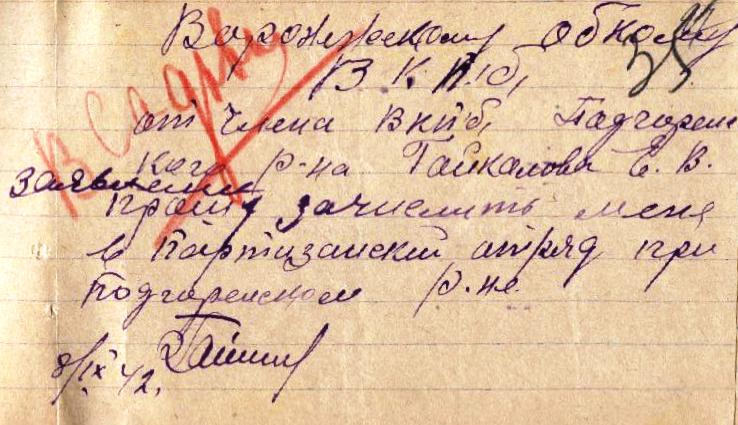 Воронежскому обкому
В К П.б,
от члена ВКПб, Подгорен
кого р-на Гайкалова Е. В.
заявление
прошу зачислить меня
в партизанский отряд при
Подгоренском р-не
8/IX 42.